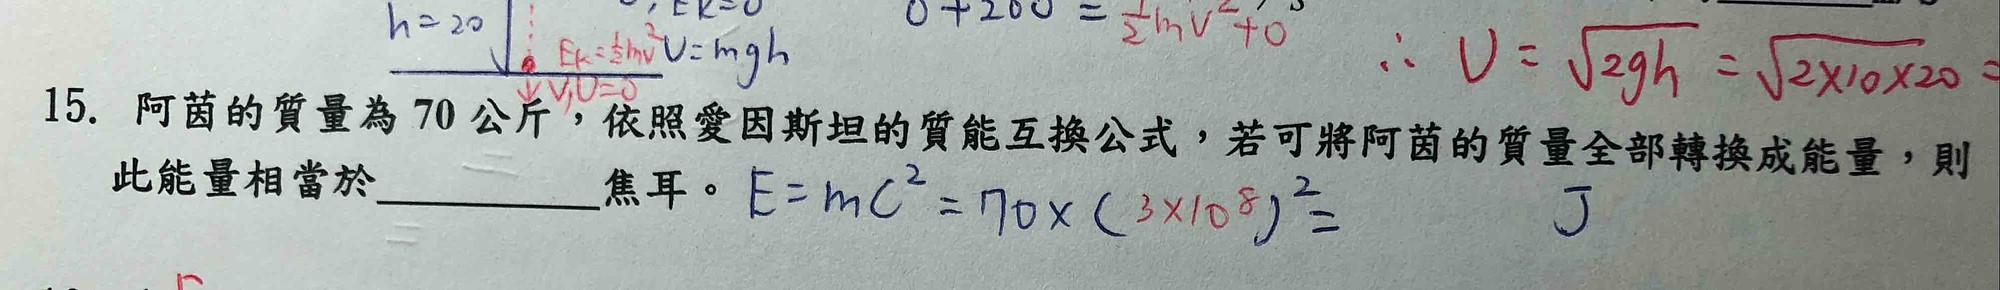 h=20
EK=0
0+200=½mv²+0
Ek=½mv² U=mgh
V, U=0
∴ V=√2gh = √2×10×20 =
15. 阿茵的質量為 70 公斤，依照愛因斯坦的質能互換公式，若可將阿茵的質量全部轉換成能量，則
此能量相當於__________焦耳。 E=mC²=70×(3×10⁸)²= J